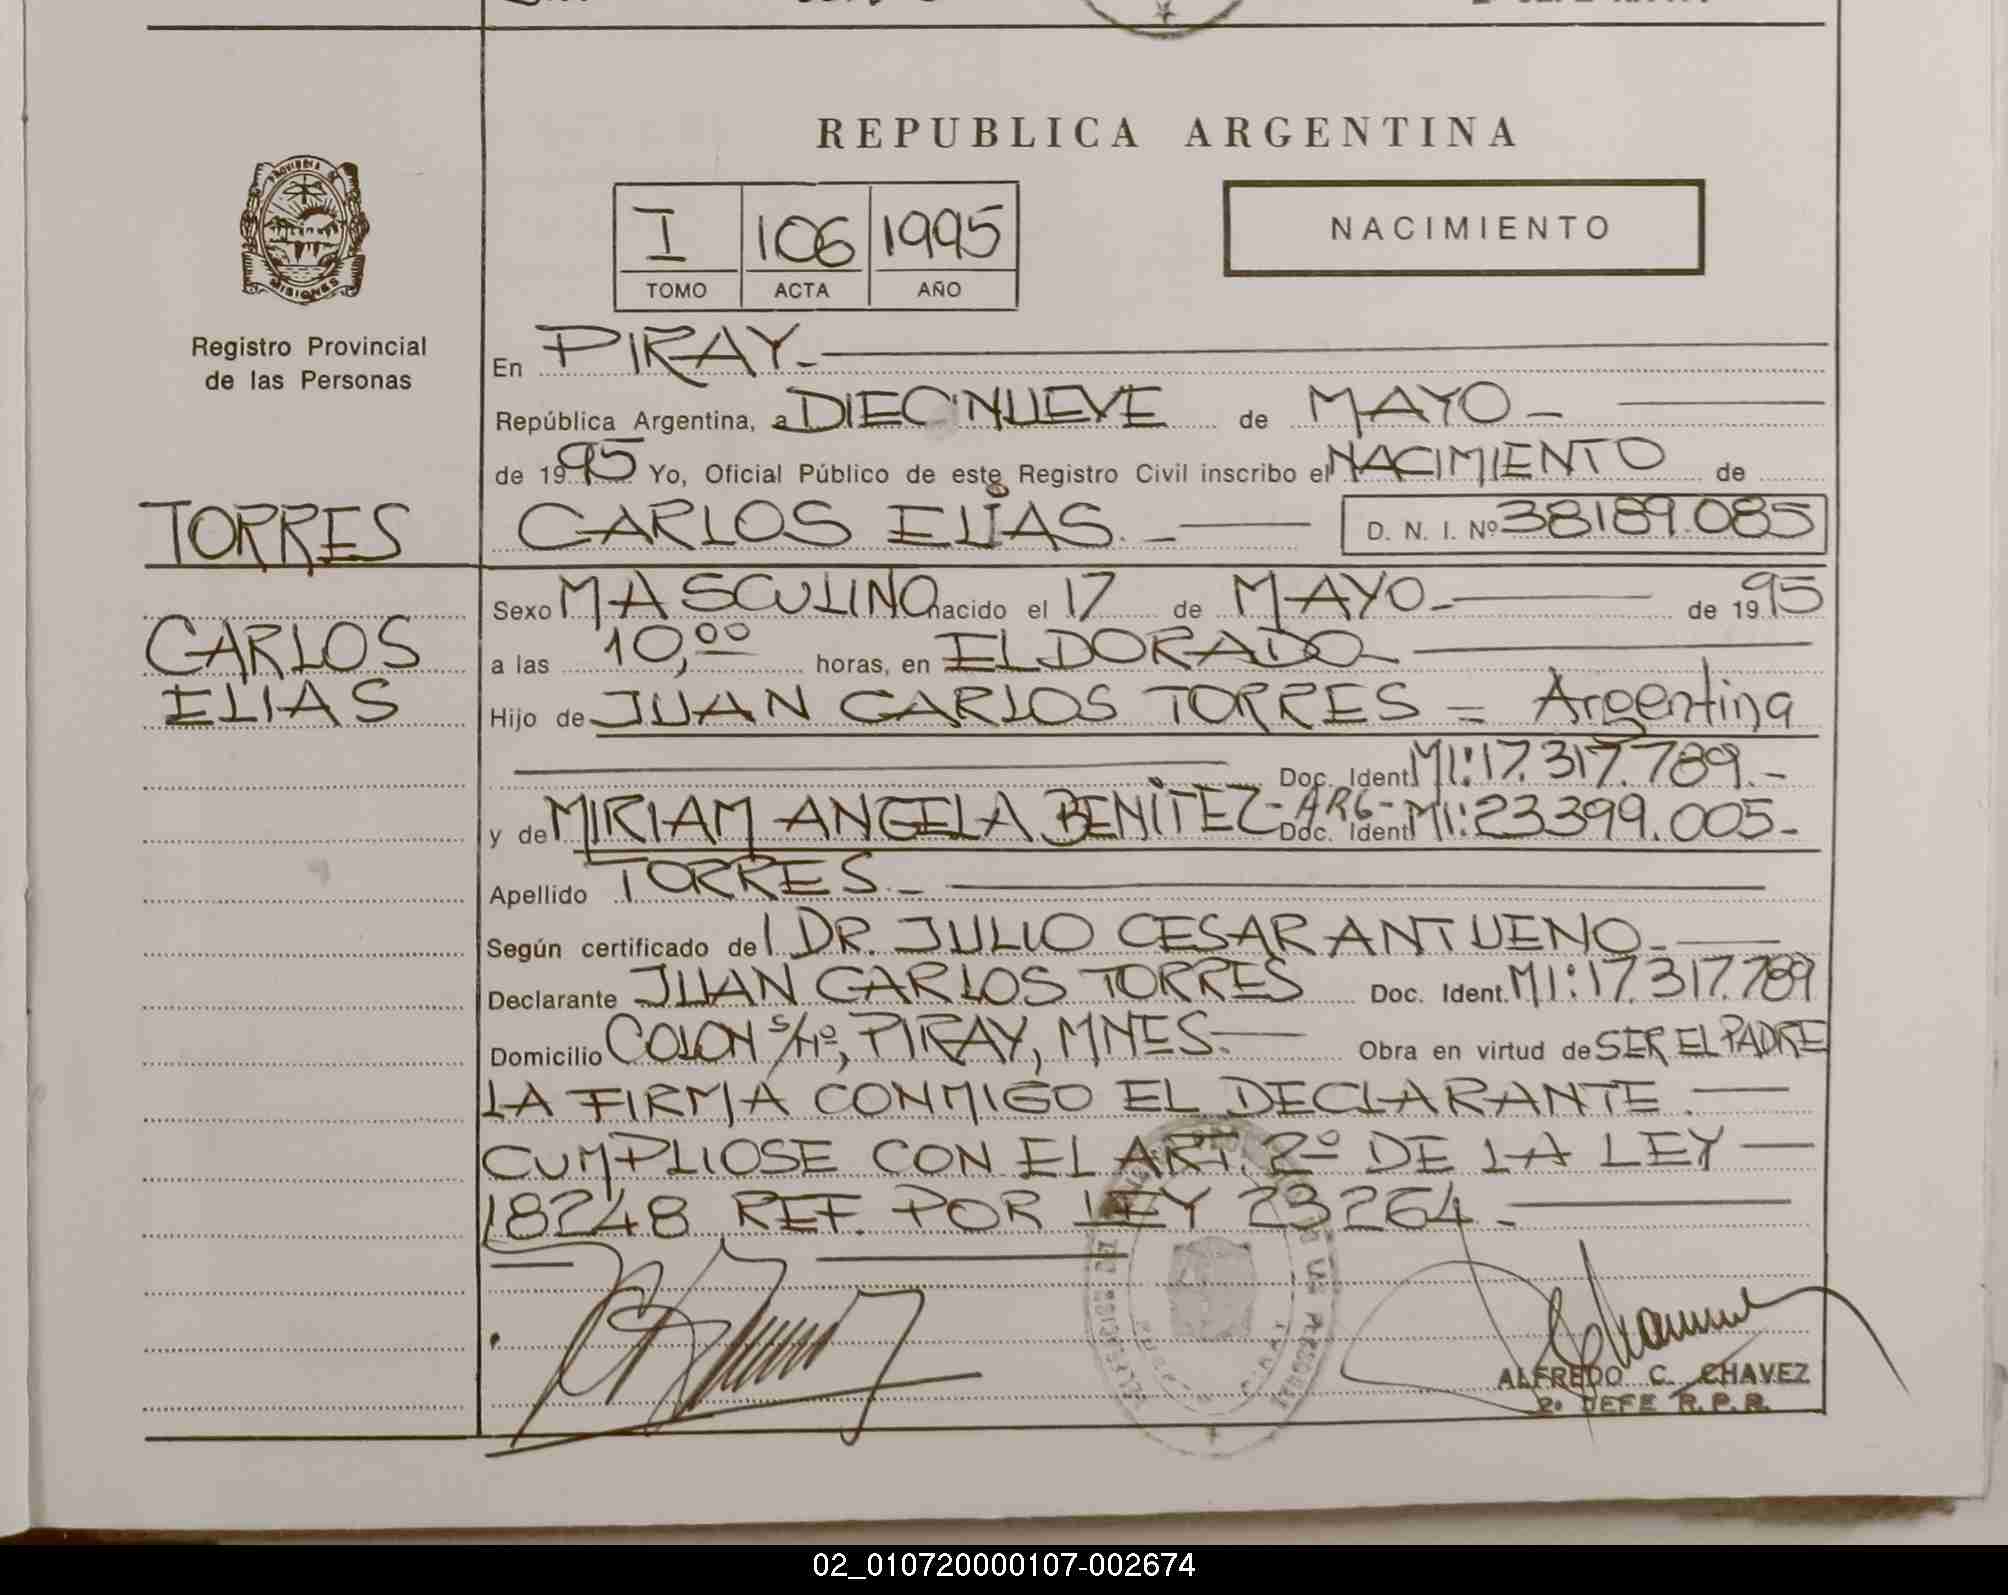 REPUBLICA ARGENTINA
I 106 1995
TOMO ACTA AÑO
NACIMIENTO
PROVINCIA DE
MISIONES
Registro Provincial
de las Personas
TORRES
CARLOS
ELIAS
En PIRAY.-
República Argentina, a DIECINUEVE de MAYO-
de 1995 Yo, Oficial Público de este Registro Civil inscribo el NACIMIENTO de
CARLOS ELIAS.- D. N. I. Nº 38189.085
Sexo MASCULINO nacido el 17 de MAYO- de 1995
a las 10,00 horas, en ELDORADO-
Hijo de JUAN CARLOS TORRES = Argentina
Doc. Ident. MI: 17.317.789.-
y de MIRIAM ANGELA BENÍTEZ-ARG- Doc. Ident. MI: 23399.005-
Apellido TORRES.-
Según certificado del DR. JULIO CESAR ANTUENO-
Declarante JUAN CARLOS TORRES Doc. Ident. MI: 17.317.789
Domicilio COLON S/Nº, PIRAY, MNES.- Obra en virtud de SER EL PADRE
LA FIRMA CONMIGO EL DECLARANTE.
CUMPLIOSE CON EL ART. 2º DE LA LEY
18248 REF. POR LEY 23264.-
ALFREDO C. CHAVEZ
2º JEFE R.P.P.
02_010720000107-002674